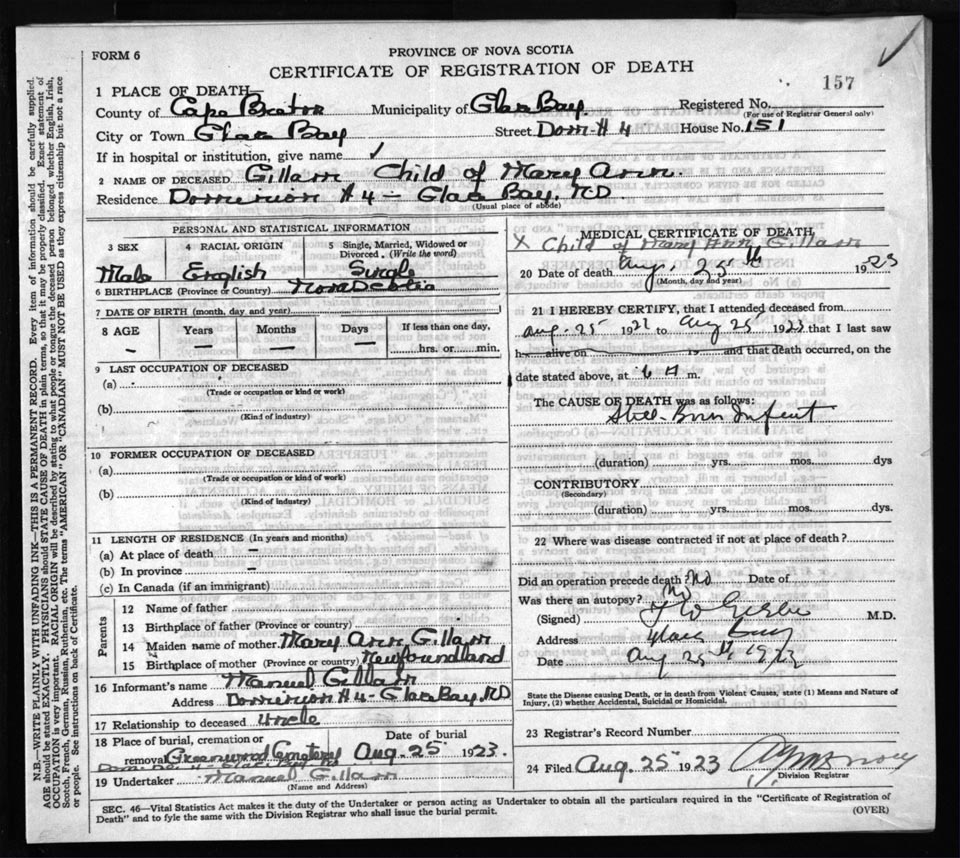 FORM 6
PROVINCE OF NOVA SCOTIA
CERTIFICATE OF REGISTRATION OF DEATH
157
1 PLACE OF DEATH
County of Cape Breton Municipality of Glace Bay Registered No.
(For use of Registrar General only)
City or Town Glace Bay Street Dom # 4 House No. 151
If in hospital or institution, give name ✓
2 NAME OF DECEASED Gillam Child of Mary Ann.
Residence Dominion # 4 - Glace Bay, N.S.
(Usual place of abode)
PERSONAL AND STATISTICAL INFORMATION
3 SEX
Male
4 RACIAL ORIGIN
English
5 Single, Married, Widowed or
Divorced. (Write the word)
Single
6 BIRTHPLACE (Province or Country) Nova Scotia
7 DATE OF BIRTH (month, day and year)
8 AGE Years Months Days If less than one day,
– – – – hrs. or min.
9 LAST OCCUPATION OF DECEASED
(a)
(Trade or occupation or kind or work)
(b)
(Kind of industry)
10 FORMER OCCUPATION OF DECEASED
(a)
(Trade or occupation or kind or work)
(b)
(Kind of industry)
11 LENGTH OF RESIDENCE (In years and months)
(a) At place of death –
(b) In province –
(c) In Canada (if an immigrant)
Parents
12 Name of father
13 Birthplace of father (Province or country)
14 Maiden name of mother Mary Ann Gillam
15 Birthplace of mother (Province or country) Newfoundland
16 Informant's name Manuel Gillam
Address Dominion # 4 - Glace Bay, N.S.
17 Relationship to deceased Uncle
18 Place of burial, cremation or Date of burial
removal Greenwood Cemetery Aug. 25 1923.
19 Undertaker Manuel Gillam
(Name and Address)
MEDICAL CERTIFICATE OF DEATH
X Child of Mary Ann Gillam
20 Date of death Aug. 25th 1923
(Month, day and year)
21 I HEREBY CERTIFY, that I attended deceased from
Aug-25 192 to Aug 25th 192 that I last saw
h alive on 19 and that death occurred, on the
date stated above, at 6 a m.
The CAUSE OF DEATH was as follows:
Still-Born Infant
(duration) yrs. mos. dys
CONTRIBUTORY
(Secondary)
(duration) yrs. mos. dys.
22 Where was disease contracted if not at place of death?
Did an operation precede death? No Date of
Was there an autopsy? No
(Signed) M.D.
Address Glace Bay
Date Aug 25th 1923
State the Disease causing Death, or in death from Violent Causes, state (1) Means and Nature of
Injury, (2) whether Accidental, Suicidal or Homicidal.
23 Registrar's Record Number
24 Filed Aug 25 1923
Division Registrar
SEC. 46—Vital Statistics Act makes it the duty of the Undertaker or person acting as Undertaker to obtain all the particulars required in the "Certificate of Registration of
Death" and to fyle the same with the Division Registrar who shall issue the burial permit.
(OVER)
N.B.—WRITE PLAINLY WITH UNFADING INK—THIS IS A PERMANENT RECORD. Every item of information should be carefully supplied.
AGE should be stated EXACTLY. PHYSICIANS should STATE CAUSE OF DEATH in plain terms, so that it may be properly classified. Exact statement of
OCCUPATION is very important. RACIAL ORIGIN will be described by stating to what people or tongue the deceased person belonged whether English, Irish,
Scotch, French, German, Russian, Ruthenian, etc. The terms "AMERICAN" OR "CANADIAN" MUST NOT BE USED as they express citizenship but not a race
or people. See instructions on back of Certificate.